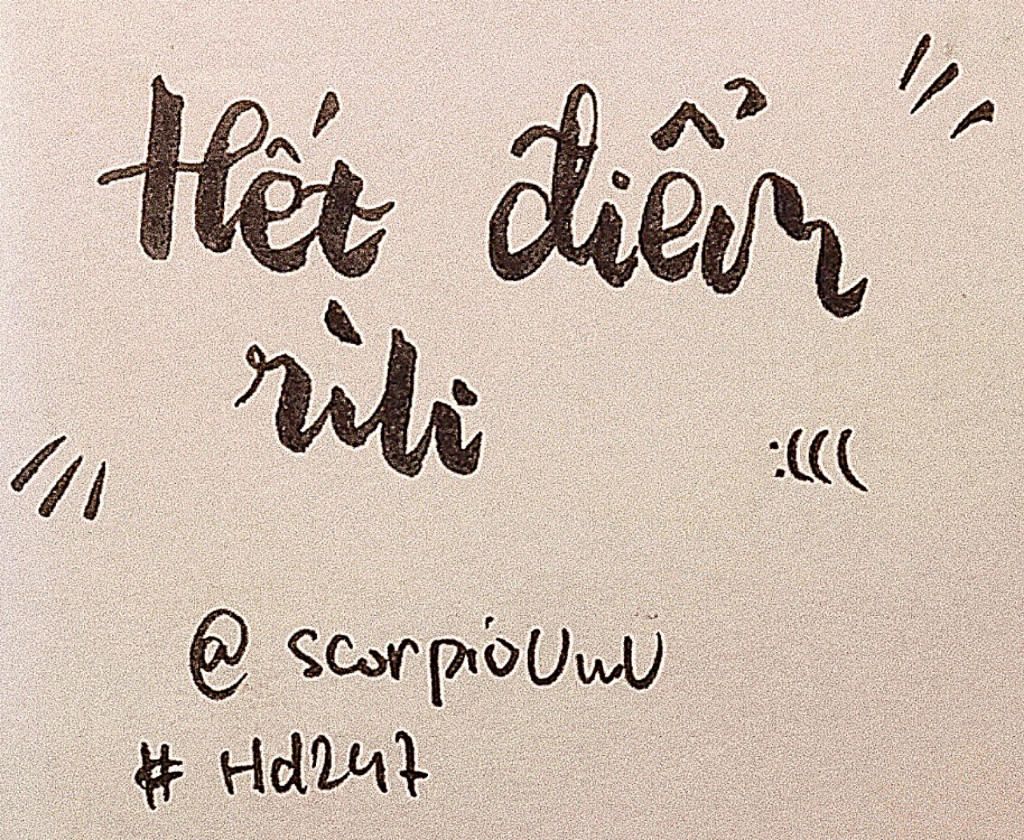 Hết điểm
rìli :(((
@ scorpioUwU
# Hd247